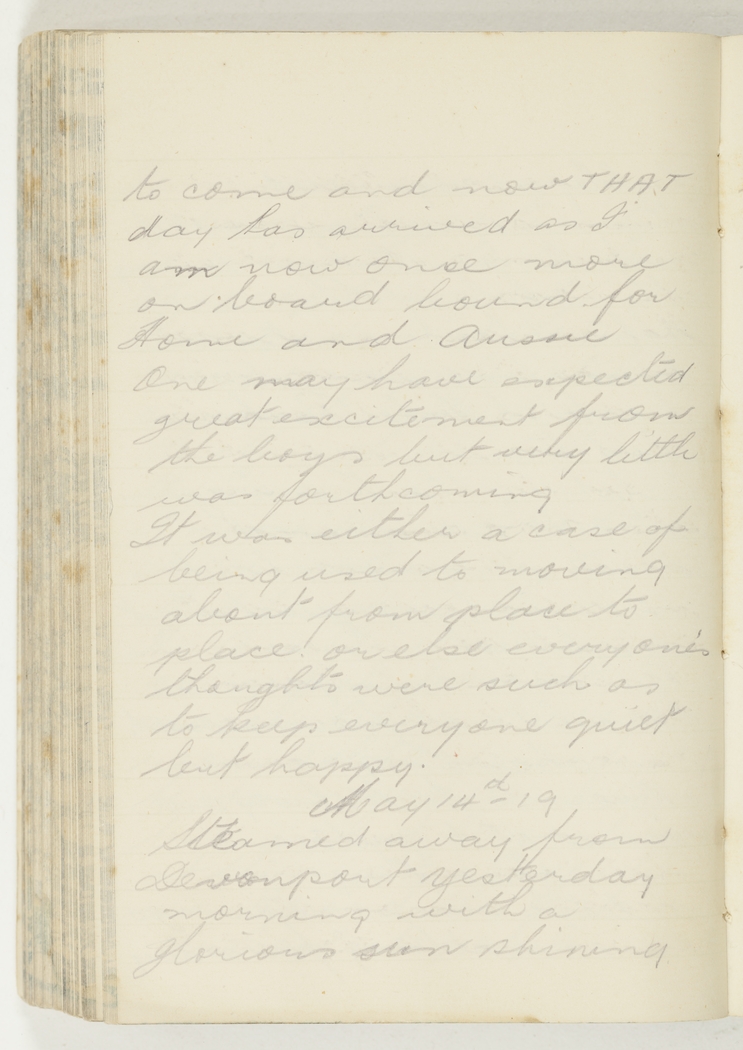 to come and now THAT
day has arrived as I
am now once more
on board bound for
Home and Aussie
One may have expected
great excitement from
the boys but very little
was forthcoming
It was either a case of
being used to moving
about from place to
place. or else everyone's
thoughts were such as
to keep everyone quiet
but happy.
May 14d-19
Steamed away from
Devonport yesterday
morning with a
glorious sun shining